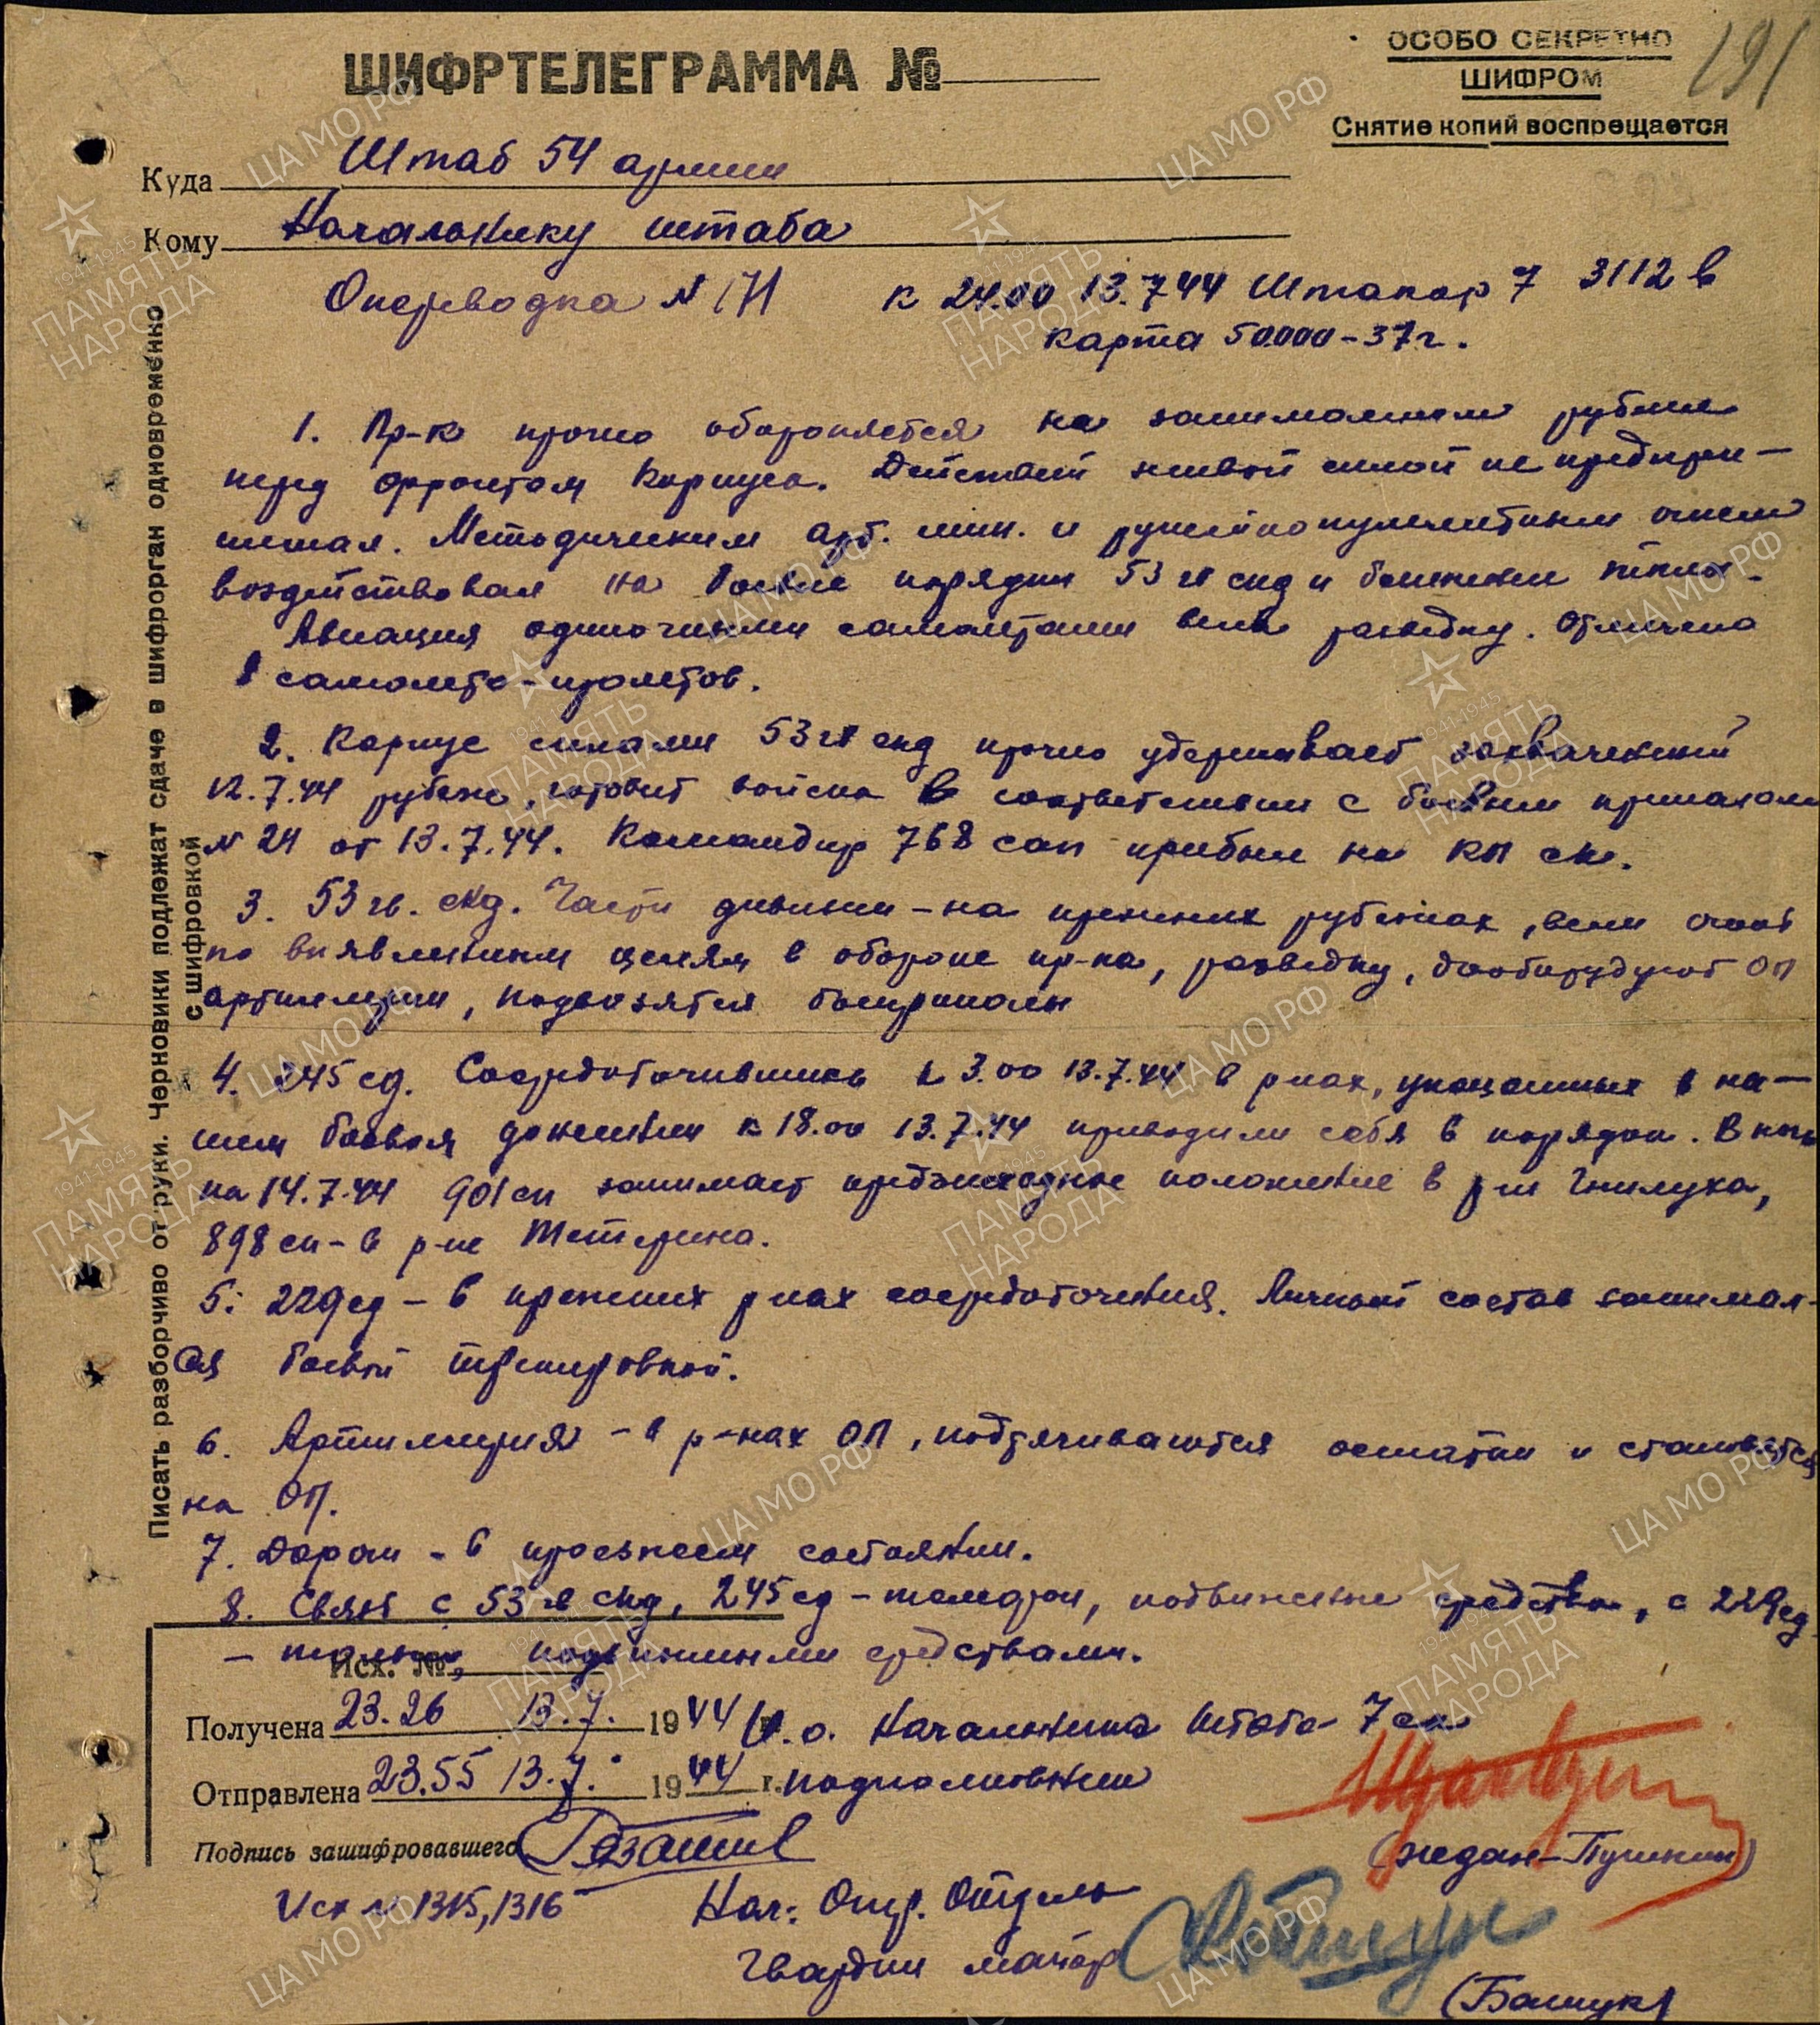 ШИФРТЕЛЕГРАММА №
ОСОБО СЕКРЕТНО
ШИФРОМ
Снятие копий воспрещается
191
Куда Штаб 54 армии
Кому Начальнику штаба
Оперсводка № 171 к 24.00 13.7.44 Штакор 7 3112 в
карта 50000-37г.
1. Пр-к прочно обороняется на занимаемом рубеже
перед фронтом корпуса. Действий живой силой не предпри-
нимал. Методическим арт. мин. и ружейнопулеметным огнем
воздействовал на боевые порядки 53 гв скд и ближние тылы.
Авиация одиночными самолетами вела разведку. Отмечено
8 самолето-пролетов.
2. Корпус силами 53 гв скд прочно удерживает захваченный
12.7.44 рубеж, готовит войска в соответствии с боевым приказом
№ 24 от 13.7.44. Командир 768 сап прибыл на КП ск.
3. 53 гв. скд. Части дивизии - на прежних рубежах, вели огонь
по выявленным целям в обороне пр-ка, разведку, дооборудуют ОП
артиллерии, подвозятся боеприпасы
4. 245 сд. Сосредоточившись к 3.00 13.7.44 в р-нах, указанных в на-
шем боевом донесении к 18.00 13.7.44 приводили себя в порядок. В ночь
на 14.7.44 901 сп занимает предисходное положение в р-не Гнилуха,
898 сп - в р-не Тетерино.
5. 229 сд - в прежних р-нах сосредоточения. Личный состав занимал-
ся боевой тренировкой.
6. Артиллерия - в р-нах ОП, подтягиваются остатки и становятся
на ОП.
7. Дороги - в проезжем состоянии.
8. Связь с 53 гв скд, 245 сд - телефон, подвижные средства, с 229 сд
- подвижными средствами.
Исх. №
Получена 23.26 13.7. 1944 г.
И.о. Начальника Штаба 7 ск
Отправлена 23.55 13.7. 1944 г.
подполковник
(Жедан-Пушкин)
Подпись зашифровавшего
Исх № 1315, 1316
Нач. Опер. Отдела
Гвардии майор
(Башук)
Писать разборчиво от руки. Черновики подлежат сдаче в шифрорган одновременно
с шифровкой
ЦА МО РФ
1941-1945
ПАМЯТЬ
НАРОДА